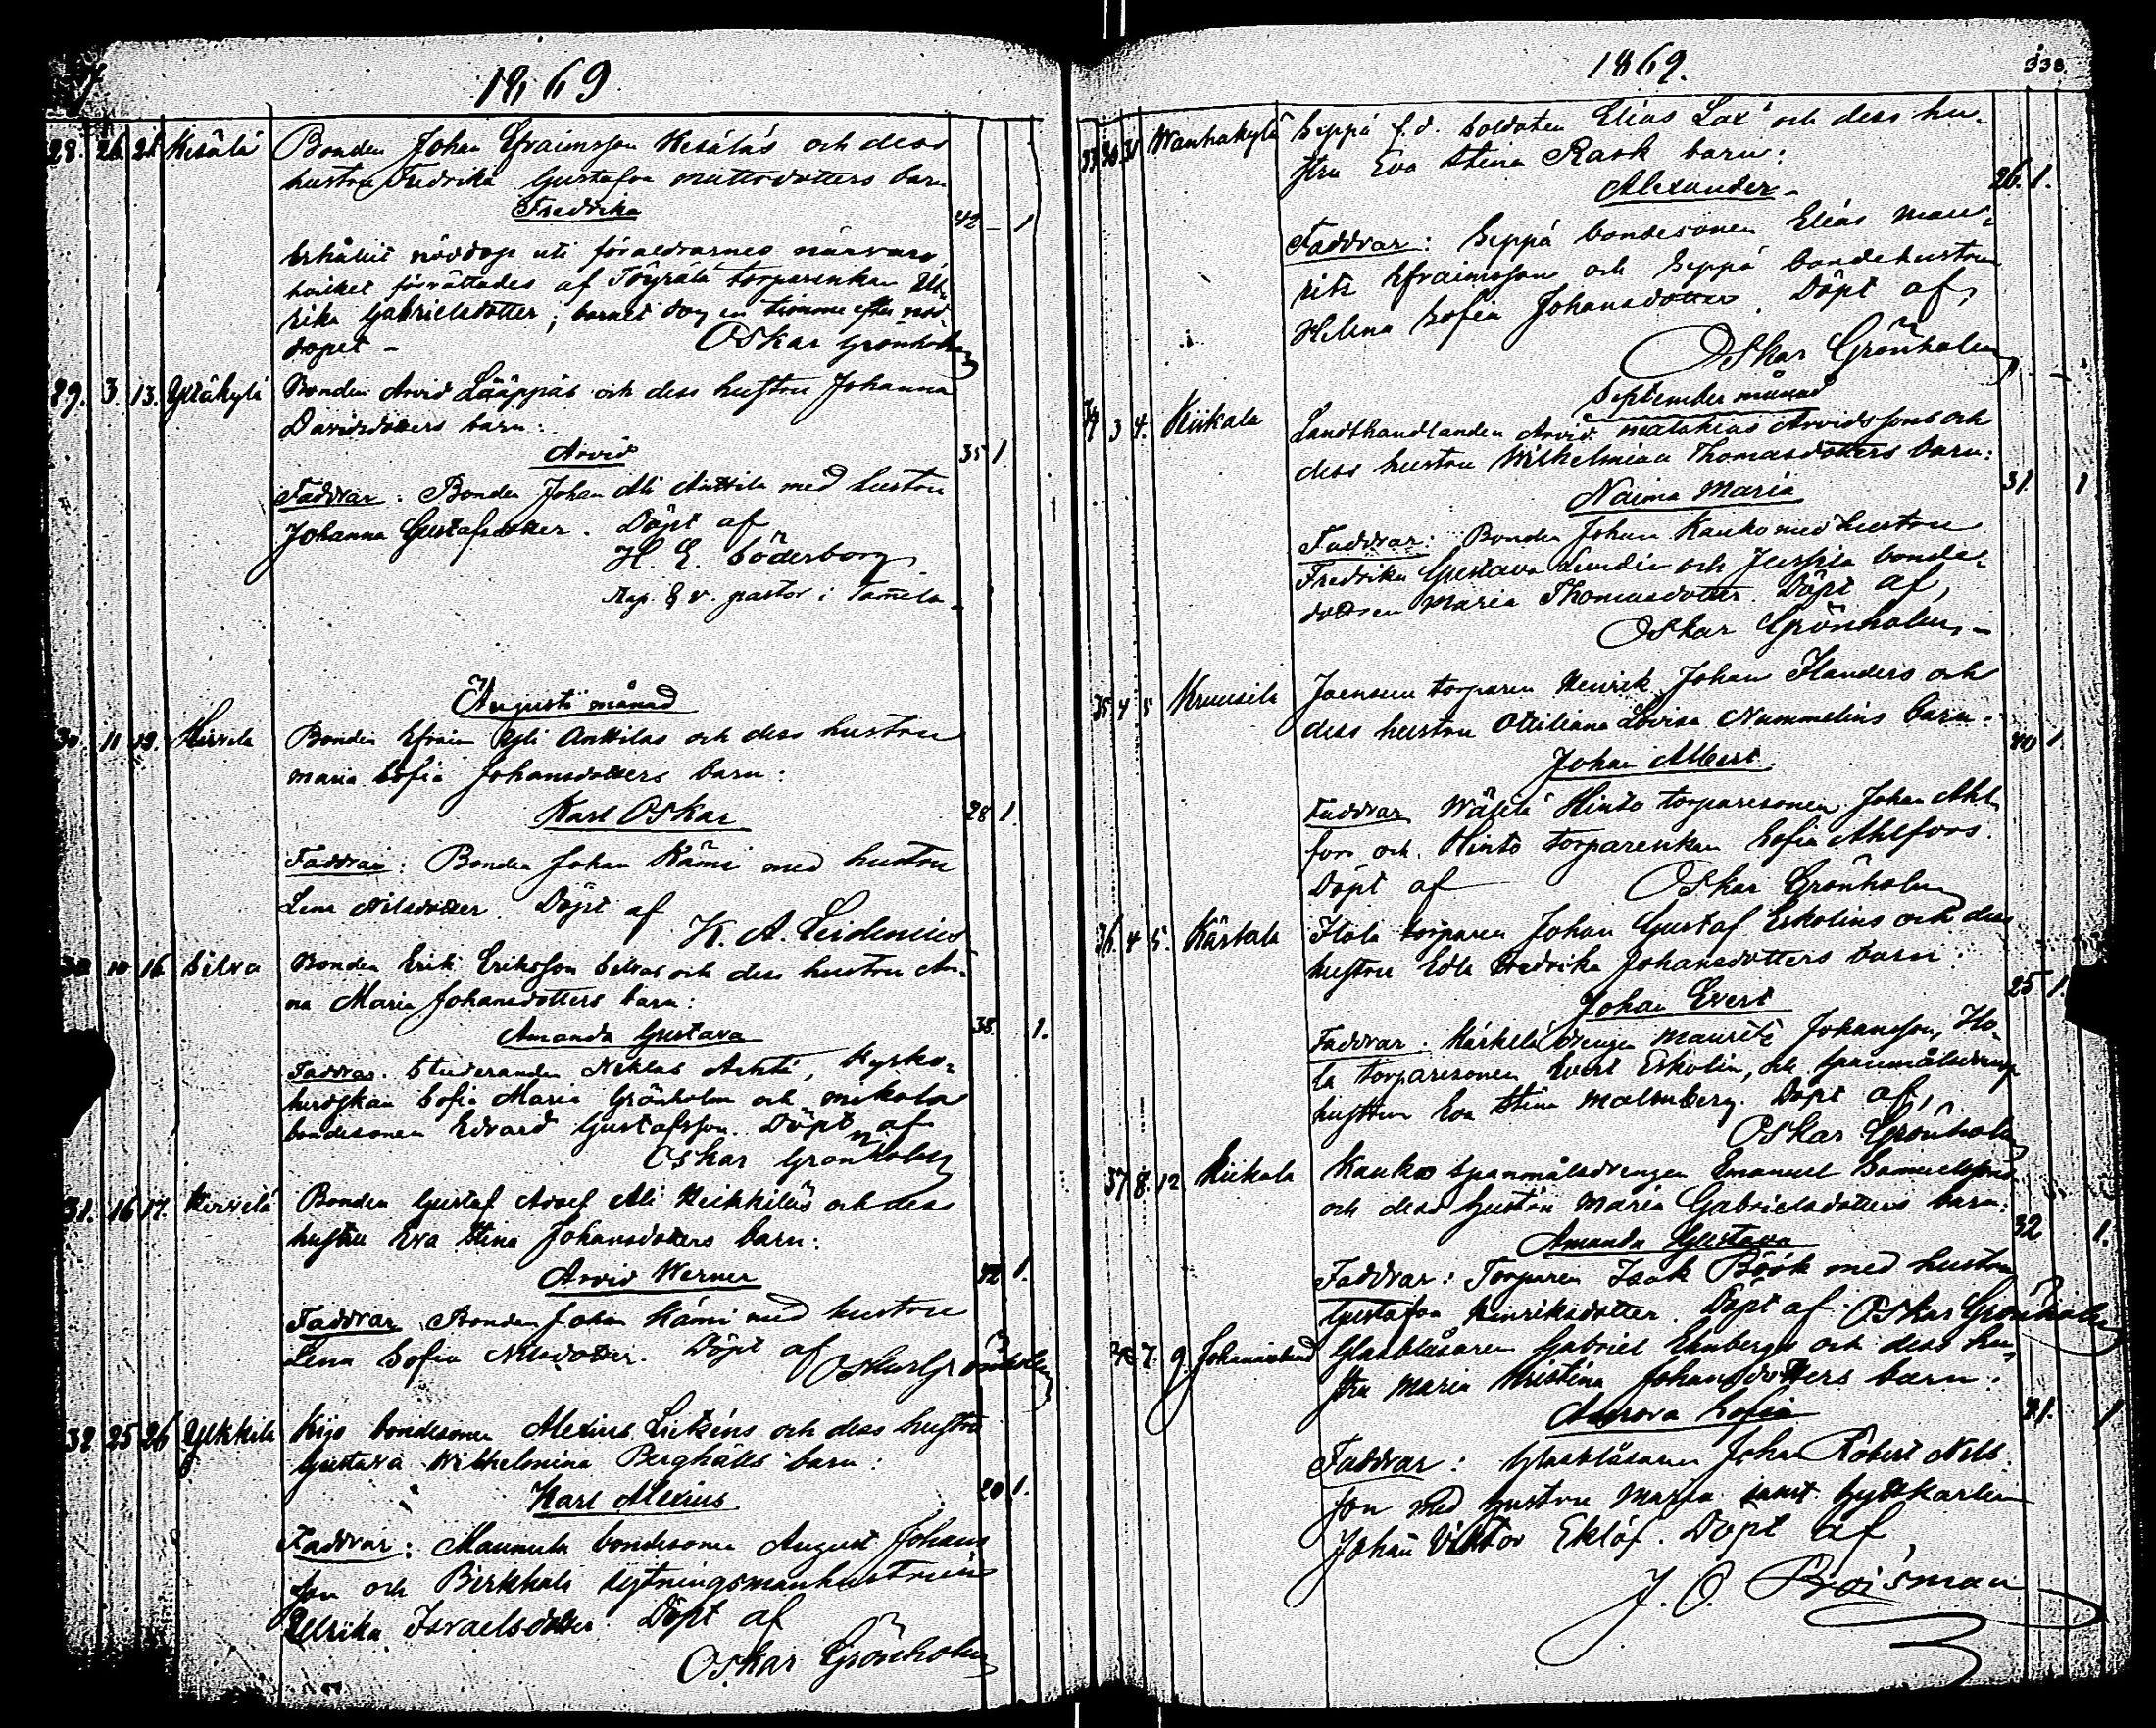 1869
28. 26 28 Kesälä Bonden Johan Efraimsson Kesäläs och dess
hustru Fredrika Gustafva Mattsdotters barn
Fredrika
42 – 1
Erhållit nöddop uti föräldrarnes närvaro,
hvilket förrättades af Töyrälä torparenkan Ul-
rika Gabrielsdotter; barnet dog en timme efter nöd-
dopet – Oskar Grönholm
29. 3 13. Yltäkylä Bonden Arvid Lääppäs och dess hustru Johanna
Davidsdotters barn:
Arvid 35 1
Faddrar: Bonden Johan Ali Anttila med hustru
Johanna Gustafsdotter. Döpt af
H. E. Söderborg
Kap. & v. pastor i Tam̄ela
Augusti månad
30. 11 19. Hirvelä Bonden Efraim Yli Anttilas och dess hustru
Maria Sofia Johansdotters barn:
Karl Oskar 28 1.
Faddrar: Bonden Johan Kämi med hustru
Lena Nilsdotter. Döpt af
K. A. Leidenius
30 10 16 Silva Bonden Erik Eriksson Silvas och dess hustru An-
na Maria Johansdotters barn:
Amanda Gustava 38. 1.
Faddrar. Studeranden Niklas Achté, Kyrko-
herdskan Sofia Maria Grönholm och Mikola
bondesonen Edvard Gustafsson. Döpt af
Oskar Grönholm
31. 16 17. Hirvelä Bonden Gustaf Adolf Ali Heikkiläs och dess
hustru Eva Stina Johansdotters barn:
Arvid Werner 42 1.
Faddrar Bonden Johan Kämi med hustru
Lena Sofia Nilsdotter. Döpt af Oskar Grönholm
32 25 26 Ylkkilä Kijo bondesonen Alexius Lietzéns och dess hustru
Gustava Wilhelmina Berghälls barn:
Karl Alexius 20 1.
Faddrar: Mannula bondesonen August Johans
son och Pirkkala
Ulrika Israelsdotter. Döpt af
Oskar Grönholm
1869. 338.
33 30 31 Wanhakylä Seppä f.d. Soldaten Elias Lax' och dess hu-
stru Eva Stina Rask barn:
Alexander – 26. 1.
Faddrar: Seppä bondesonen Elias Mau-
ritz Efraimsson och Seppä bondehustrun
Helena Sofia Johansdotter. Döpt af,
Oskar Grönholm
September månad
34 3 4. Kiikala Landthandlanden Arvid Malakias Arvidssons och
dess hustru Wilhelmina Thomasdotters barn:
Naima Maria 31. 1
Faddrar: Bonden Johan Kauko med hustru
Fredrika Gustava Lundén och Jussila bonde-
dottren Maria Thomasdotter. Döpt af,
Oskar Grönholm –
35 4 5 Kruusila Joensuu torparen Henrik Johan Flanders och
dess hustru Ottiliana Lovisa Nummelins barn:
Johan Albert 40 1.
Faddrar Wähä Hintö torparesonen Johan Ahl-
fors och Hintö torparenkan Sofia Ahlfors.
Döpt af Oskar Grönholm
36. 4 5. Kärkelä Hola torparen Johan Gustaf Eskolins och dess
hustru Edla Fredrika Johansdotters barn:
Johan Evert 25 1.
Faddrar. Kärkelä drengen Mauritz Johansson, Ho-
la torparesonen Evert Eskolin, och Spanmålsdrengs
hustrun Eva Stina Malmberg. Döpt af,
Oskar Grönholm
37 8. 12 Kiikala Kauko Spanmålsdrengen Emanuel Samuelssons
och dess hustru Maria Gabrielsdotters barn:
Amanda Gustava 32 1.
Faddrar: Torparen Isak Böök med hustru
Gustafva Henriksdotter. Döpt af Oskar Grönholm
38 7. 9. Johannislund Glasblåsaren Gabriel Ehnbergs och dess hu-
stru Maria Kristina Johansdotters barn:
Aurora Sofia 31. 1
Faddrar: Glasblåsaren Johan Robert Nils-
son med hustru Maria samt hyttkarlen
Johan Viktor Eklöf. Döpt af,
J. O. Roisman